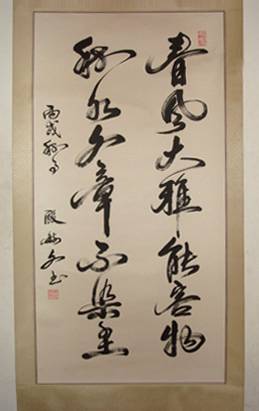 春風大雅能容物
秋水文章不染塵
丙戌秋
文书